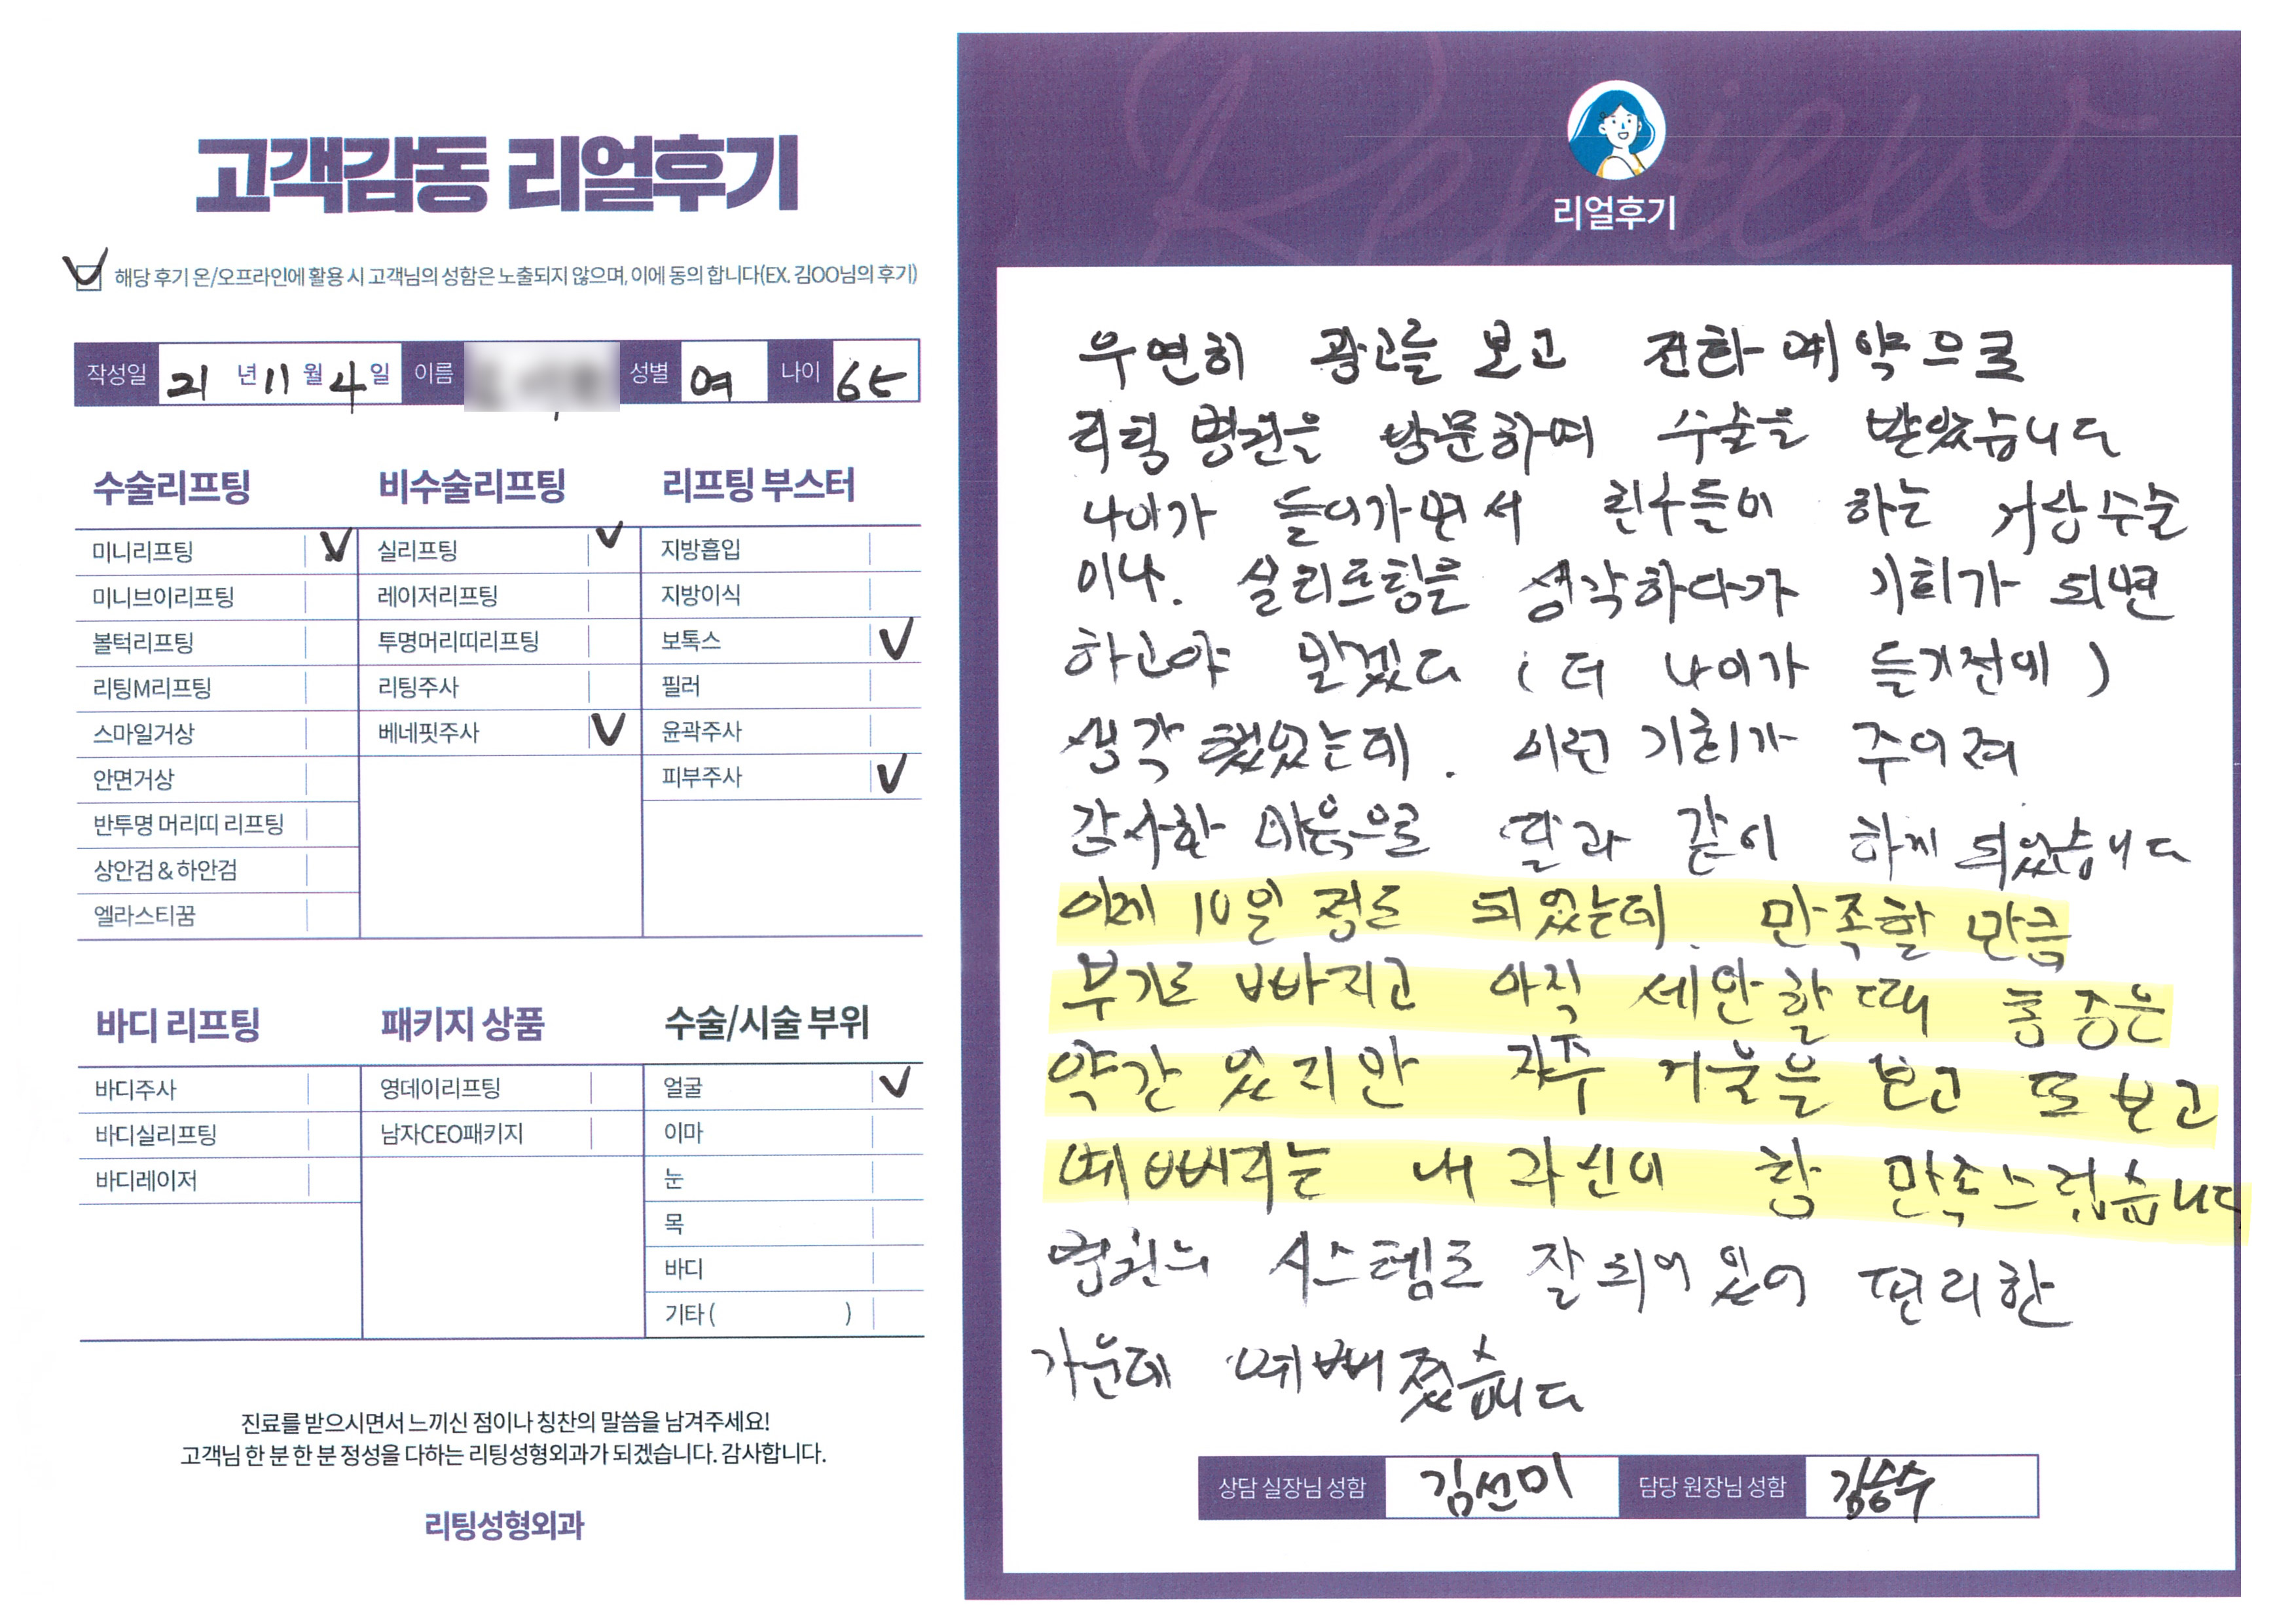 고객감동 리얼후기
해당 후기 온/오프라인에 활용 시 고객님의 성함은 노출되지 않으며, 이에 동의 합니다(EX. 김OO님의 후기)
작성일 21 년 11 월 4 일 이름 성별 여 나이 65
수술리프팅 비수술리프팅 리프팅 부스터
미니리프팅 실리프팅 지방흡입
미니브이리프팅 레이저리프팅 지방이식
볼턱리프팅 투명머리띠리프팅 보톡스
리팅M리프팅 리팅주사 필러
스마일거상 베네핏주사 윤곽주사
안면거상 피부주사
반투명 머리띠 리프팅
상안검 & 하안검
엘라스티꿈
바디 리프팅 패키지 상품 수술/시술 부위
바디주사 영데이리프팅 얼굴
바디실리프팅 남자CEO패키지 이마
바디레이저 눈
목
바디
기타 ( )
진료를 받으시면서 느끼신 점이나 칭찬의 말씀을 남겨주세요!
고객님 한 분 한 분 정성을 다하는 리팅성형외과가 되겠습니다. 감사합니다.
리팅성형외과
Review
리얼후기
우연히 광고를 보고 전화예약으로
리팅 병원을 방문하여 수술을 받았습니다
나이가 들어가면서 친구들이 하는 거상수술
이나. 실리프팅을 생각하다가 기회가 되면
하고야 말겠다 ( 더 나이가 들기전에 )
생각 했었는데. 이런 기회가 주어져
감사한 마음으로 딸과 같이 하게 되었습니다
이제 10일 정도 되었는데. 만족할 만큼
부기도 빠지고 아직 세안할 때 통증은
약간 있지만 자주 거울을 보고 또 보고
예뻐지는 내 자신이 참 만족스럽습니다
병원의 시스템도 잘 되어 있어 편리한
가운데 예뻐졌습니다
상담 실장님 성함 김선미 담당 원장님 성함 김승수